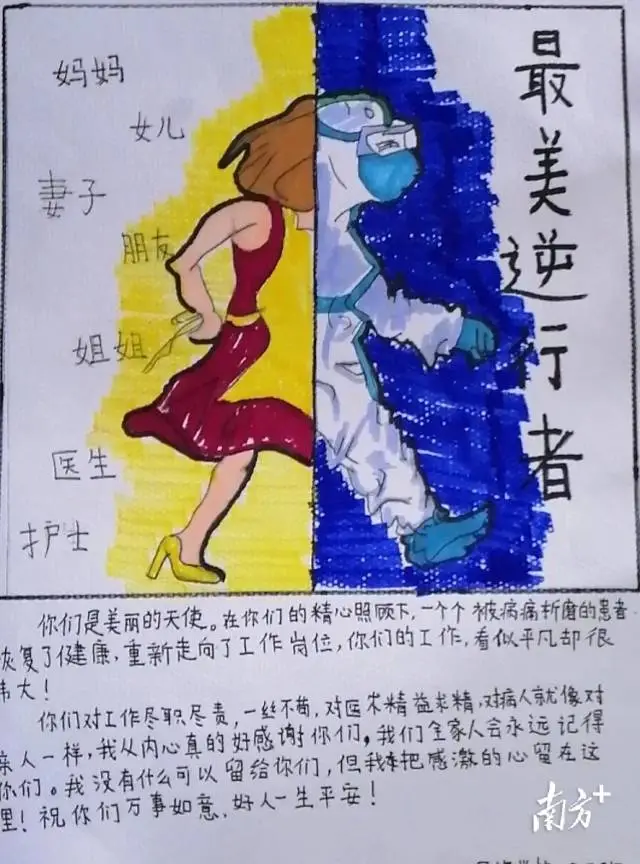 妈妈
女儿
妻子
朋友
姐姐
医生
护士
最美逆行者
你们是美丽的天使。在你们的精心照顾下,一个个被病痛折磨的患者
恢复了健康,重新走向了工作岗位,你们的工作,看似平凡却很
伟大!
你们对工作尽职尽责,一丝不苟,对医术精益求精,对病人就像对
亲人一样,我从内心真的好感谢你们。我们全家人会永远记得
你们。我没有什么可以留给你们,但我把感激的心留在这
里!祝你们万事如意,好人一生平安!
南方+